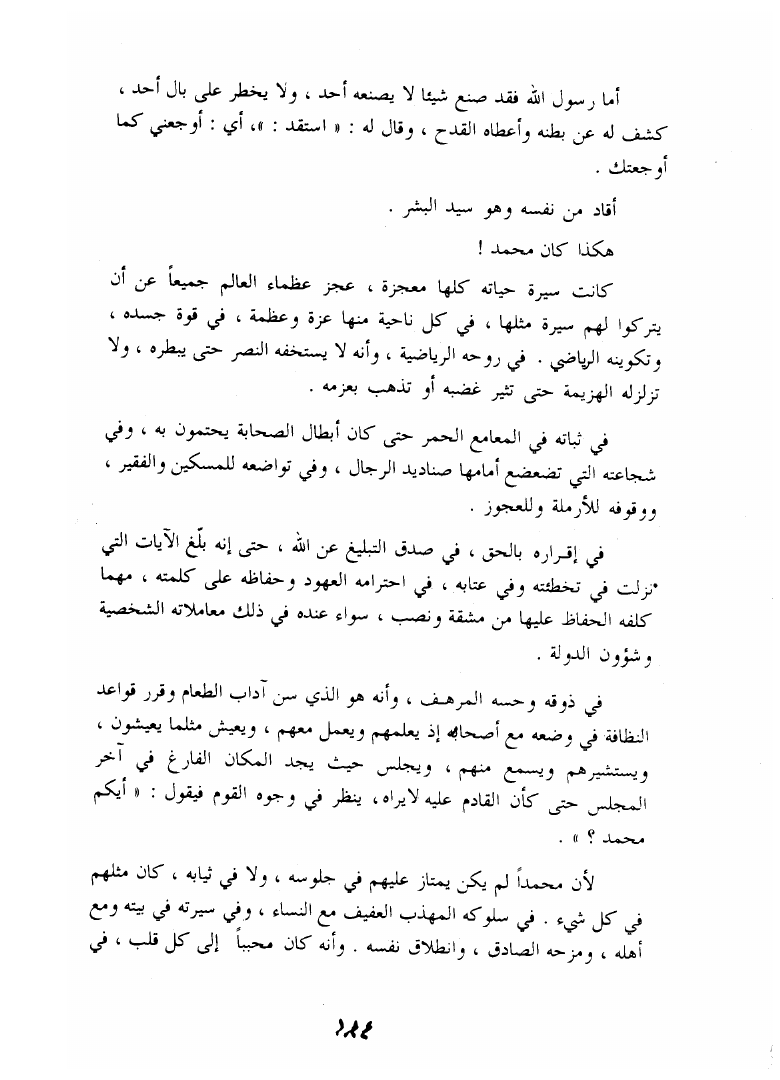 أما رسول الله فقد صنع شيئا لا يصنعه أحد ، ولا يخطر على بال أحد ،
كشف له عن بطنه وأعطاه القدح ، وقال له : « استقد : »، أي : أوجعني كما
أوجعتك .
أقاد من نفسه وهو سيد البشر .
هكذا كان محمد !
كانت سيرة حياته كلها معجزة ، عجز عظماء العالم جميعاً عن أن
يتركوا لهم سيرة مثلها ، في كل ناحية منها عزة وعظمة ، في قوة جسده ،
وتكوينه الرياضي . في روحه الرياضية ، وأنه لا يستخفه النصر حتى يبطره ، ولا
تزلزله الهزيمة حتى تثير غضبه أو تذهب بعزمه .
في ثباته في المعامع الحمر حتى كان أبطال الصحابة يحتمون به ، وفي
شجاعته التي تضعضع أمامها صناديد الرجال ، وفي تواضعه للمسكين والفقير ،
ووقوفه للأرملة وللعجوز .
في إقراره بالحق ، في صدق التبليغ عن الله ، حتى إنه بلّغ الآيات التي
نزلت في تخطئته وفي عتابه ، في احترامه العهود وحفاظه على كلمته ، مهما
كلفه الحفاظ عليها من مشقة ونصب ، سواء عنده في ذلك معاملاته الشخصية
وشؤون الدولة .
في ذوقه وحسه المرهف ، وأنه هو الذي سن آداب الطعام وقرر قواعد
النظافة في وضعه مع أصحابه إذ يعلمهم ويعمل معهم ، ويعيش مثلما يعيشون ،
ويستشيرهم ويسمع منهم ، ويجلس حيث يجد المكان الفارغ في آخر
المجلس حتى كأن القادم عليه لايراه، ينظر في وجوه القوم فيقول : « أيكم
محمد ؟ » .
لأن محمداً لم يكن يمتاز عليهم في جلوسه ، ولا في ثيابه ، كان مثلهم
في كل شيء . في سلوكه المهذب العفيف مع النساء ، وفي سيرته في بيته ومع
أهله ، ومزحه الصادق ، وانطلاق نفسه . وأنه كان محبباً إلى كل قلب ، في